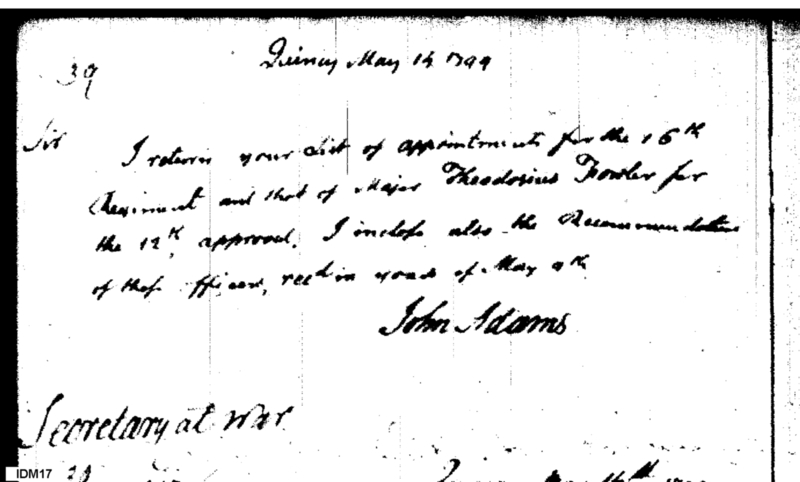 39
Quincy May 14 1799
Sir
I return your List of appointments for the 16th
Regiment and that of Major Theodosius Fowler for
the 12th, approved. I inclose also the Recommendations
of those officers, recd in yours of May 9th
John Adams
Secretary at War
IDM17